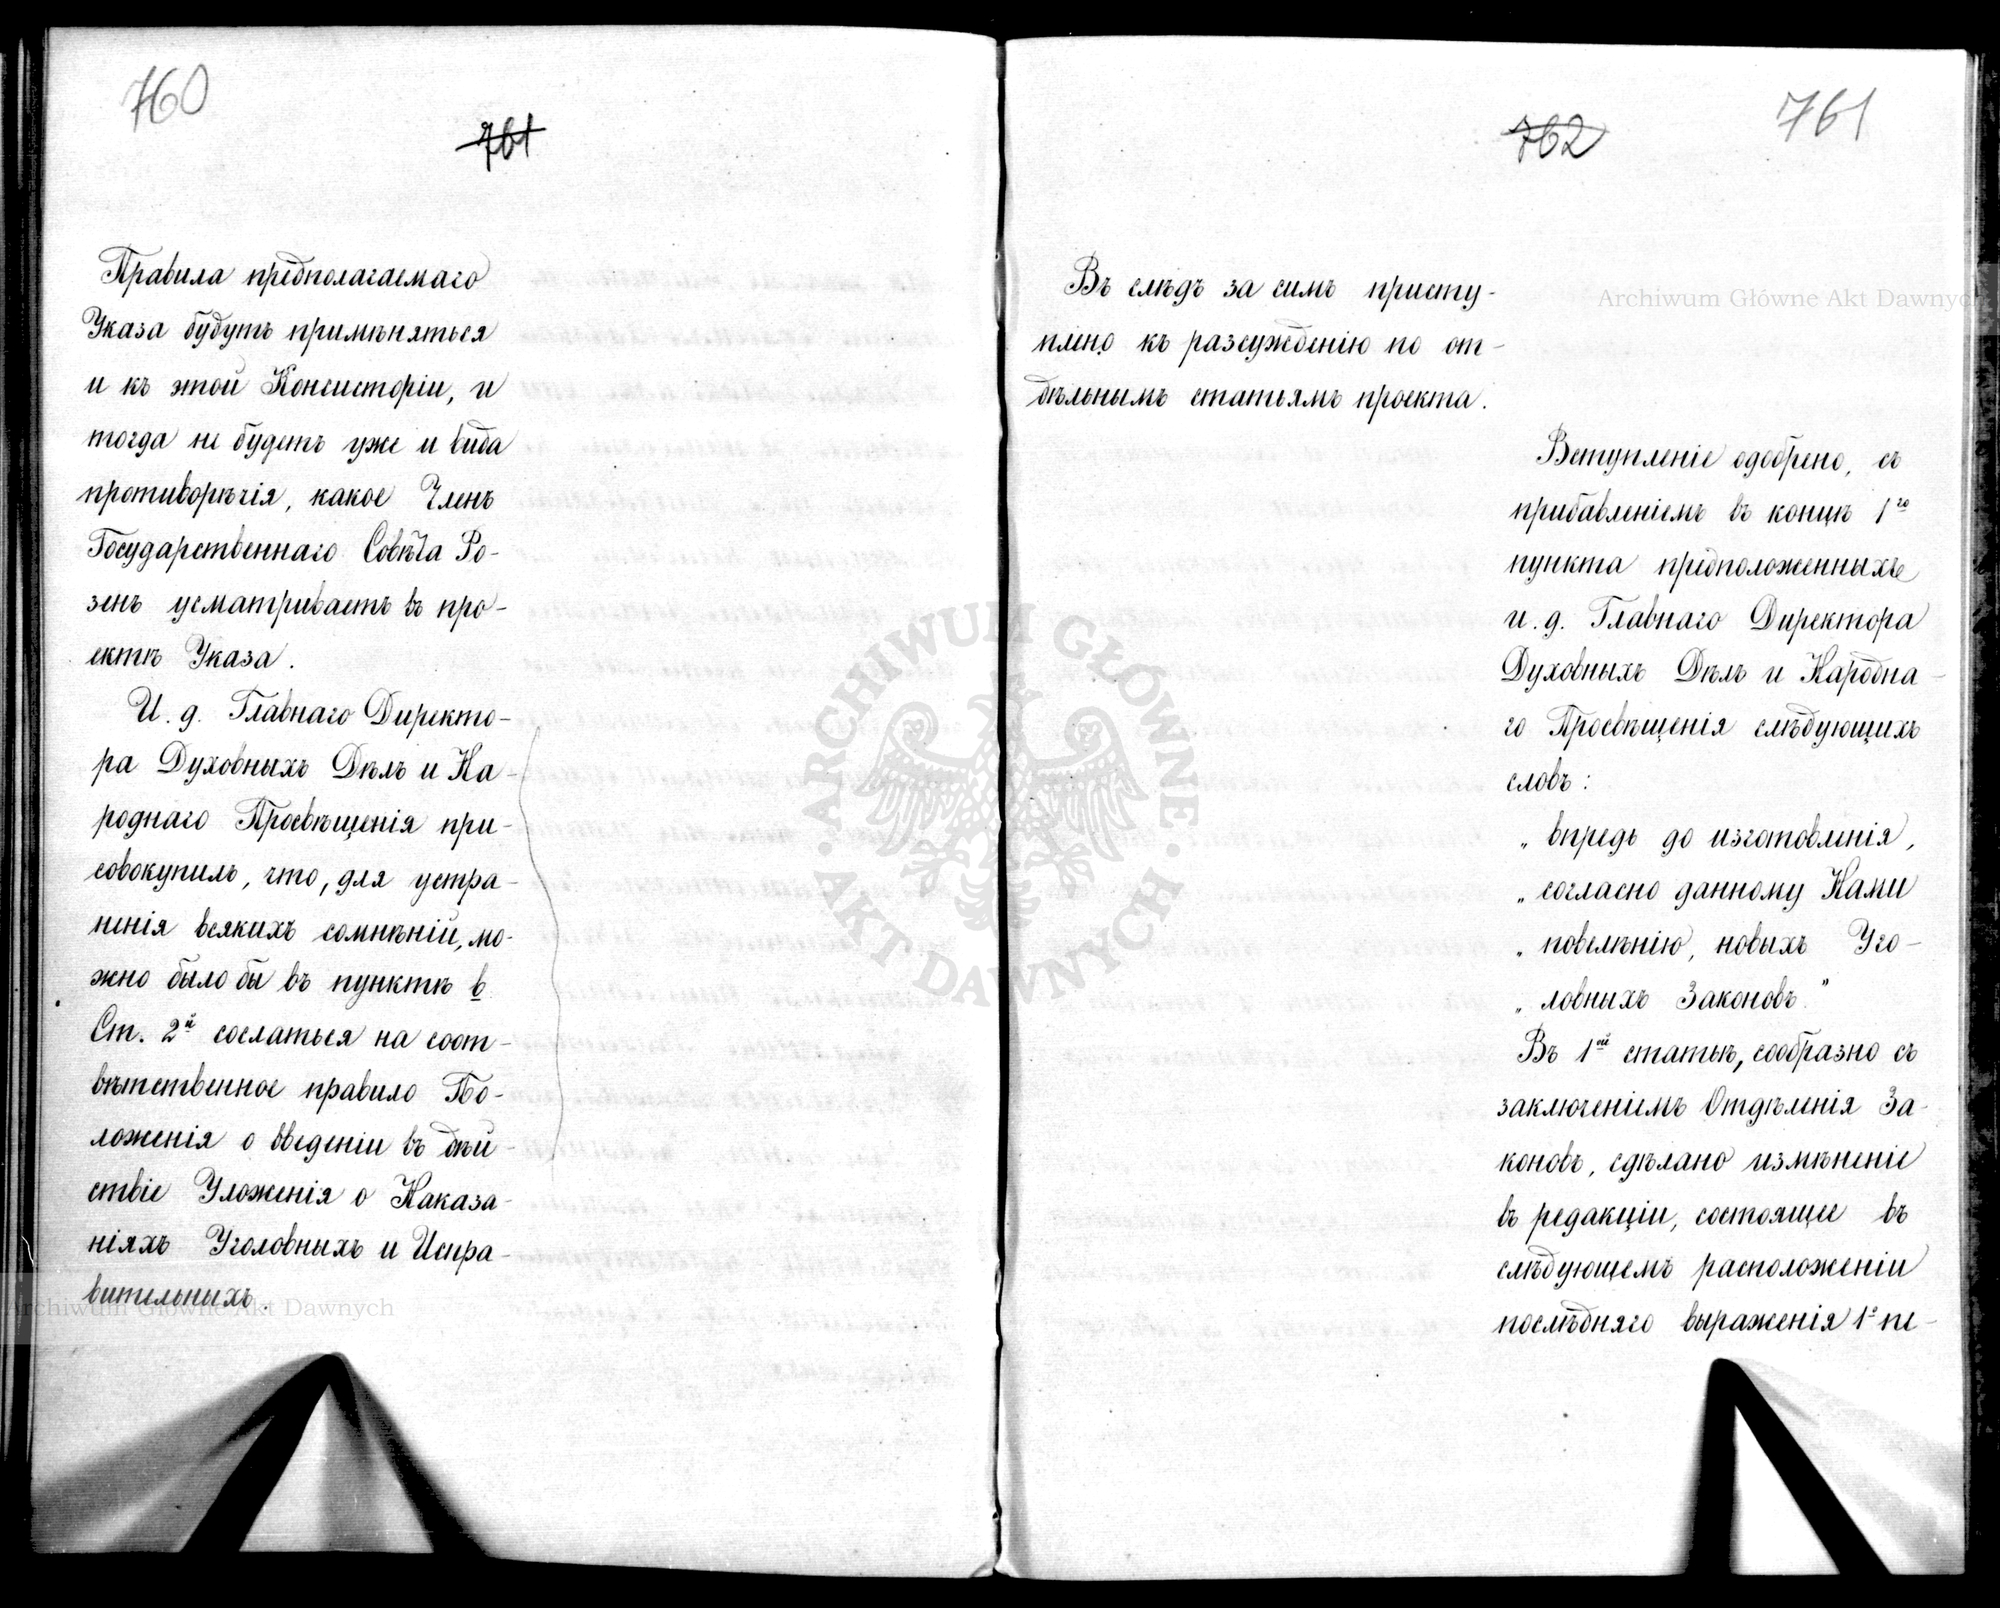 760
761
Правила предполагаемаго
Указа будутъ примѣняться
и къ этой Консисторіи, и
тогда не будетъ уже и вида
противорѣчія, какое Членъ
Государственнаго Совѣта Ро-
зенъ усматриваетъ въ про-
ектѣ Указа.
И. д. Главнаго Директо-
ра Духовныхъ Дѣлъ и На-
роднаго Просвѣщенія при-
совокупилъ, что, для устра-
ненія всякихъ сомнѣній, мо-
жно было бы въ пунктѣ в
Ст. 2й сослаться на соот-
вѣтственное правило По-
ложенія о введеніи въ дѣй-
ствіе Уложенія о Наказа-
ніяхъ Уголовныхъ и Испра-
вительныхъ.
Archiwum Główne Akt Dawnych
762
761
Въ слѣдъ за симъ присту-
плено къ разсужденію по от-
дѣльнымъ статьямъ проекта.
Archiwum Główne Akt Dawnych
Вступленіе одобрено, съ
прибавленіемъ въ концѣ 1го
пункта предположенныхъ
и. д. Главнаго Директора
Духовныхъ Дѣлъ и Народна-
го Просвѣщенія слѣдующихъ
словъ:
„ впредь до изготовленія,
„ согласно данному Нами
„ повелѣнію, новыхъ Уго-
„ ловныхъ Законовъ."
Въ 1ой статьѣ, сообразно съ
заключеніемъ Отдѣленія За-
коновъ, сдѣлано измѣненіе
въ редакціи, состоящее въ
слѣдующемъ расположеніи
послѣдняго выраженія 1о пе-
ARCHIWUM GŁÓWNE · AKT DAWNYCH ·